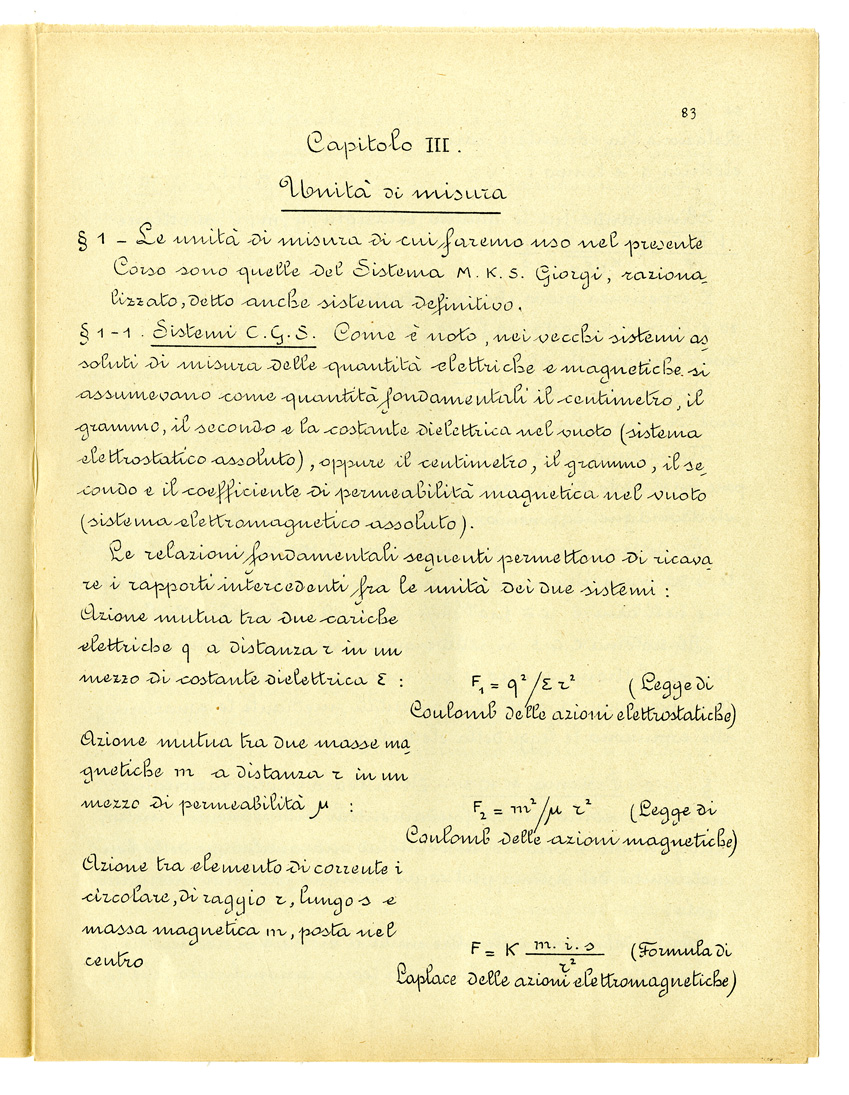 83
Capitolo III.
Unità di misura
§ 1 - Le unità di misura di cui faremo uso nel presente
Corso sono quelle del Sistema M.K.S. Giorgi, raziona_
lizzato, detto anche sistema definitivo.
§ 1-1. Sistemi C.G.S. Come è noto, nei vecchi sistemi as_
soluti di misura delle quantità elettriche e magnetiche si
assumevano come quantità fondamentali il centimetro, il
grammo, il secondo e la costante dielettrica nel vuoto (sistema
elettrostatico assoluto), oppure il centimetro, il grammo, il se_
condo e il coefficiente di permeabilità magnetica nel vuoto
(sistema elettromagnetico assoluto).
Le relazioni fondamentali seguenti permettono di ricava_
re i rapporti intercedenti fra le unità dei due sistemi :
Azione mutua tra due cariche
elettriche q a distanza r in un
mezzo di costante dielettrica Ɛ : F₁ = q²/Ɛ r² (Legge di
Coulomb delle azioni elettrostatiche)
Azione mutua tra due masse ma_
gnetiche m a distanza r in un
mezzo di permeabilità μ : F₂ = m²/μ r² (Legge di
Coulomb delle azioni magnetiche)
Azione tra elemento di corrente i
circolare, di raggio r, lungo s e
massa magnetica m, posta nel
centro F = K m. i. s / r² (Formula di
Laplace delle azioni elettromagnetiche)